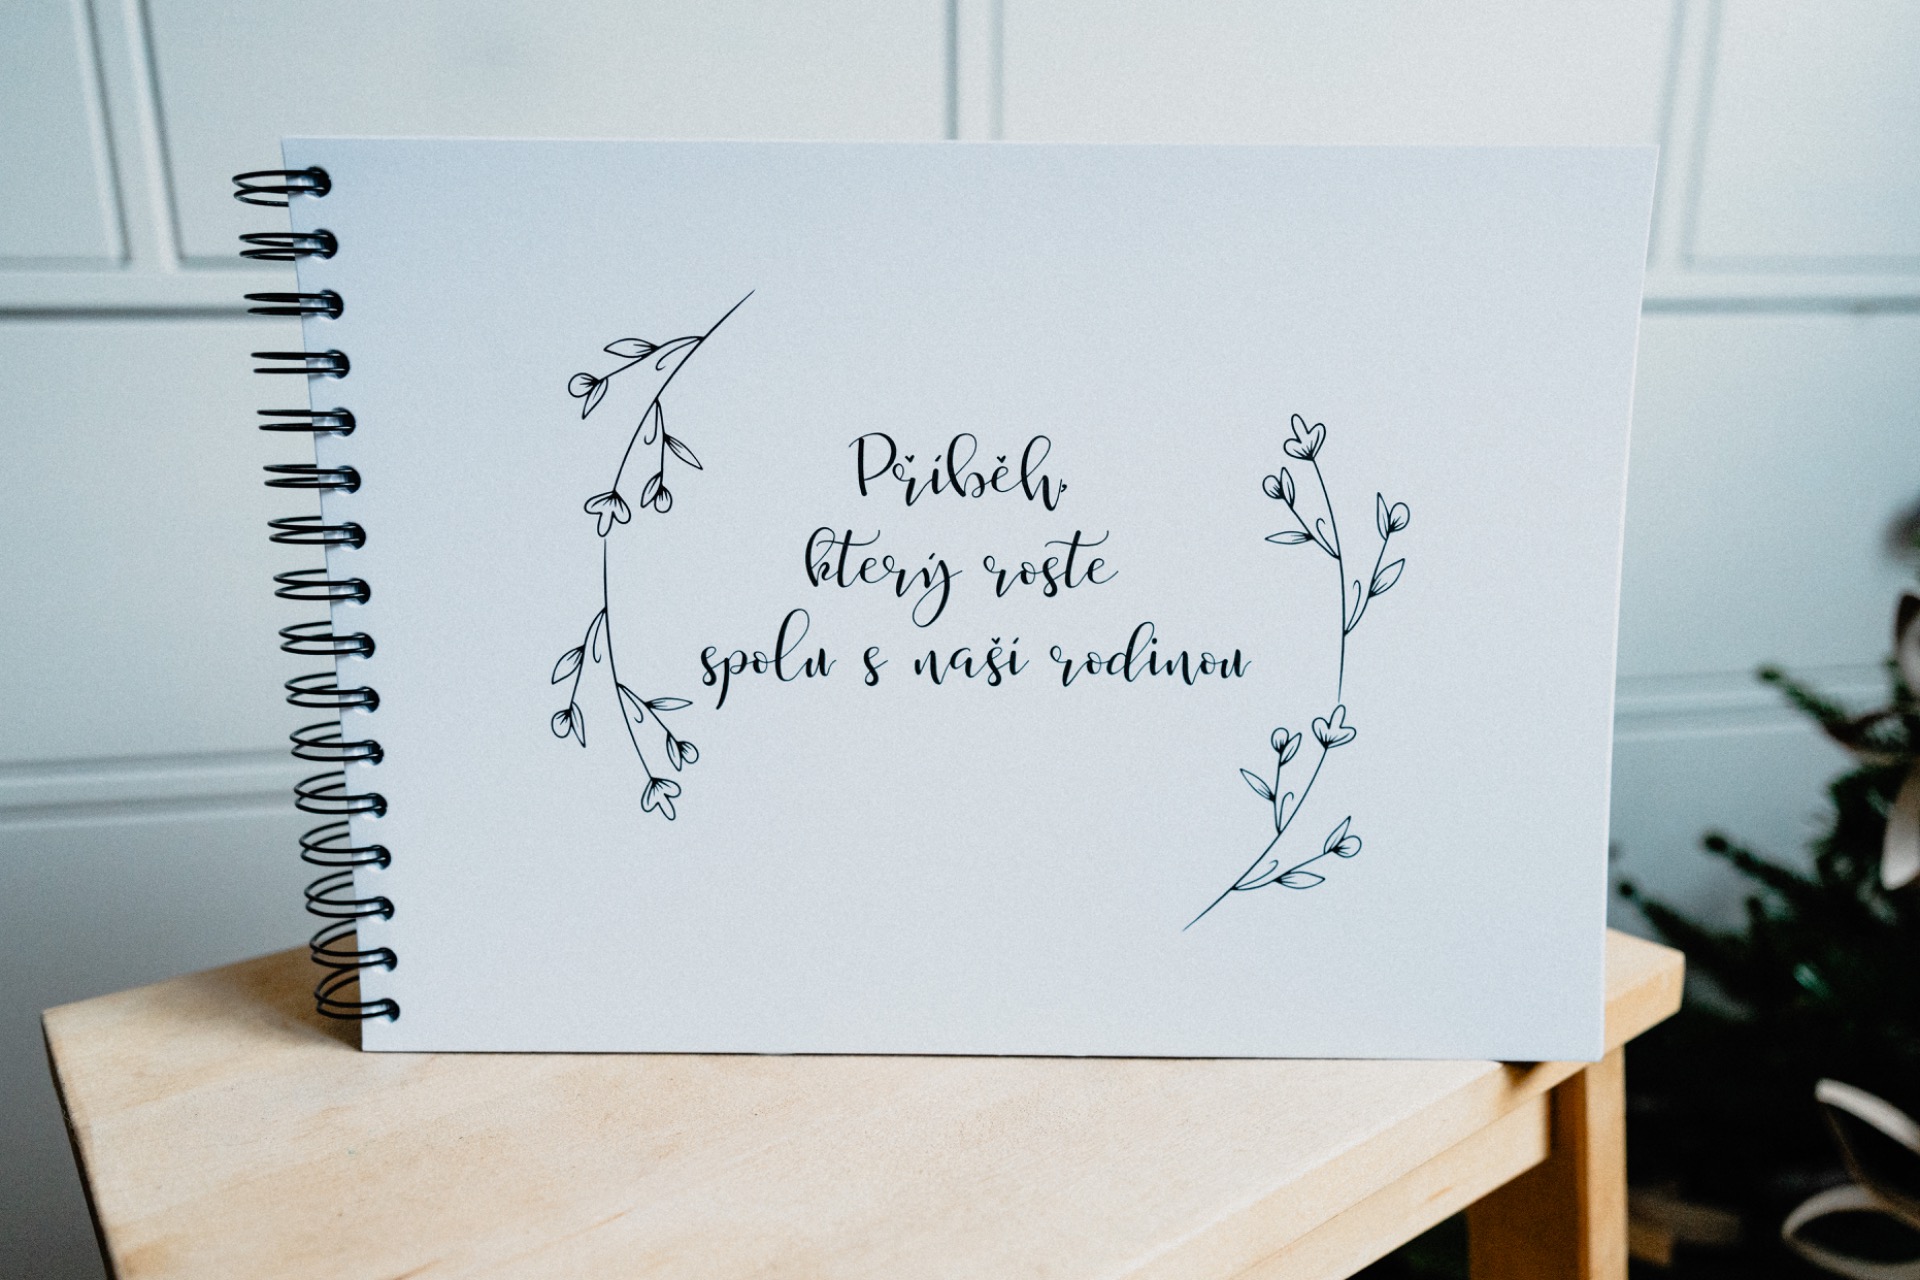 Příběh,
který roste
spolu s naší rodinou